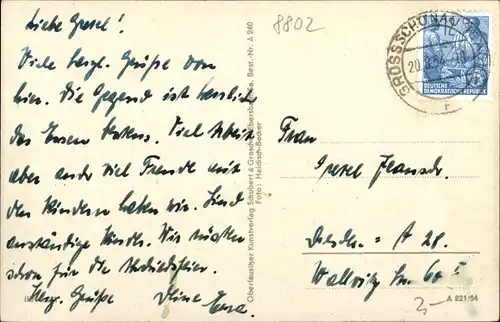 Liebe Gretel!
Viele herzl. Grüße von
hier. Die Gegend ist herrlich
das Essen bestens. Viel Arbeit
aber auch viel Freude mit
den Kindern haben wir. Sind
anständige Kinder. Wir müssen
schon für die Abschiedsfeier.
Herzl. Grüße Deine
8802
GROSSSCHÖNAU
20
DEUTSCHE
DEMOKRATISCHE REPUBLIK
Oberlausitzer Kunstverlag Schubert & Grosche, Ebersbach/Sa. Best.-Nr. A 240
Foto: Heldisch-Becker
Frau
Gretel
Dresden = A 28.
Wallwitz Str.
A 821/54